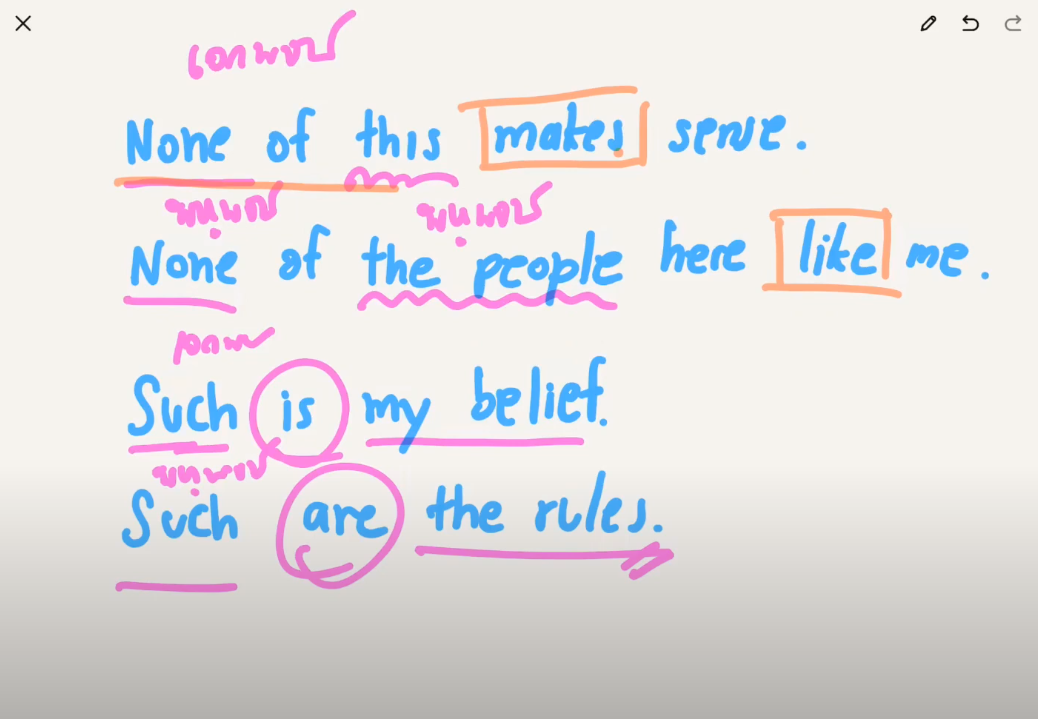 เอกพจน์
None of this makes sense.
พหุพจน์ พหุพจน์
None of the people here like me.
เอกพจน์
Such is my belief.
พหุพจน์
Such are the rules.